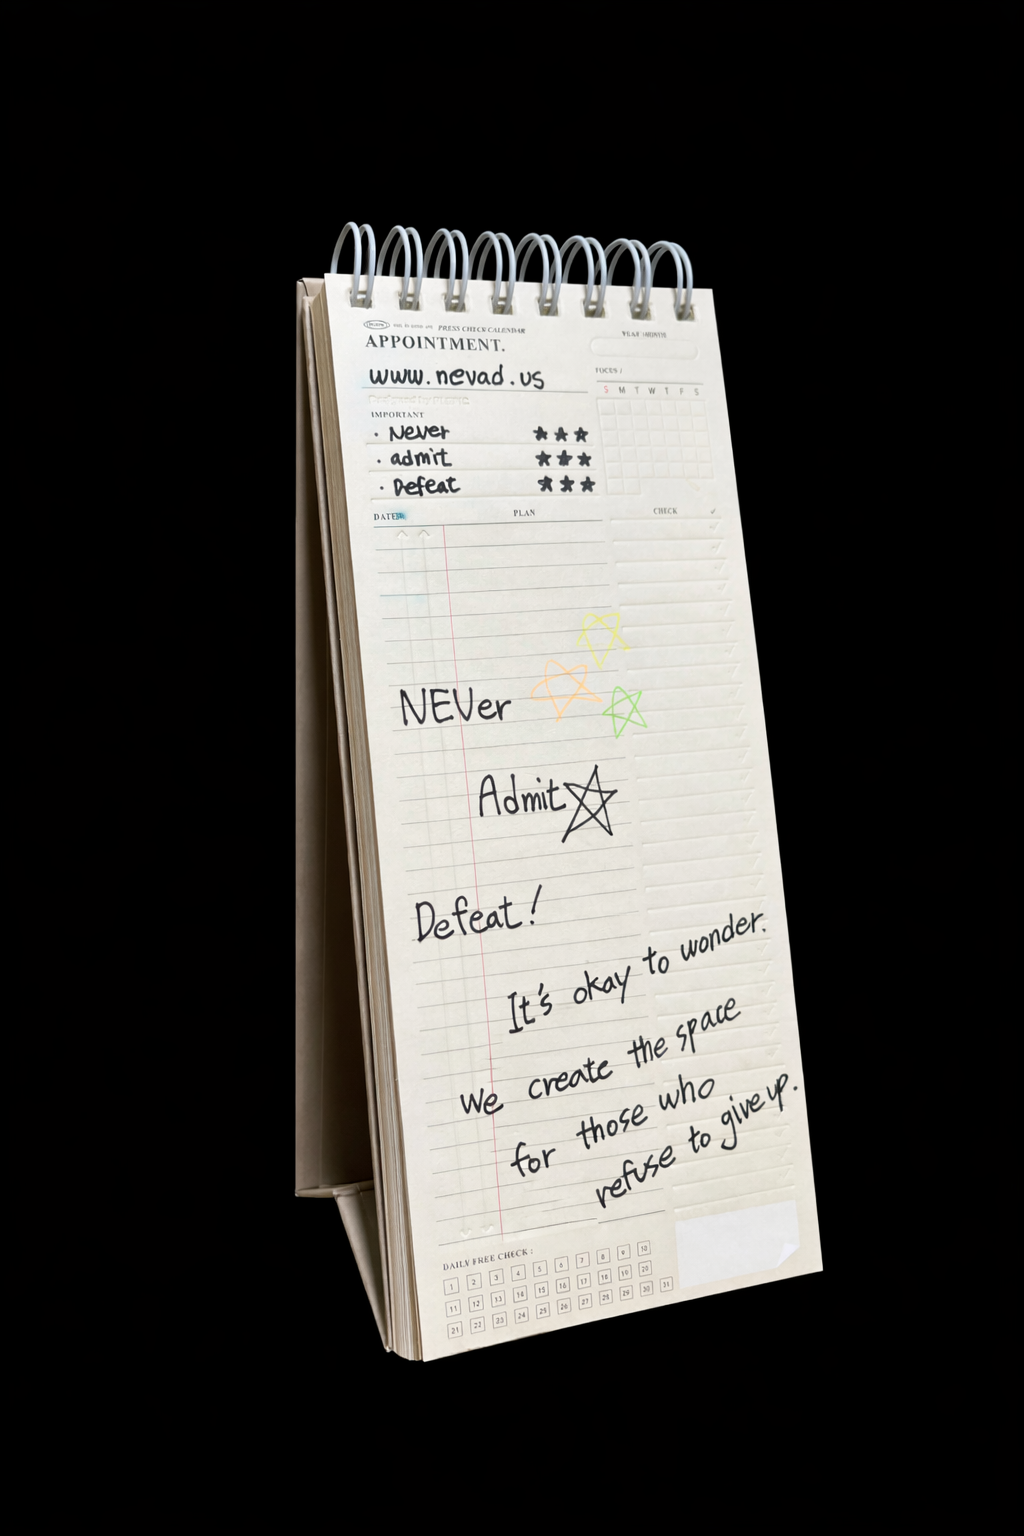 PRESS CHECK CALENDAR
APPOINTMENT.
YEAR / MONTH
www.nevad.us
FOCUS /
S M T W T F S
IMPORTANT
· Never ★ ★ ★
· admit ★ ★ ★
· Defeat ★ ★ ★
DATE PLAN CHECK ✓
NEVer
Admit
Defeat!
It's okay to wonder.
We create the space
for those who
refuse to give up.
DAILY FREE CHECK :
1 2 3 4 5 6 7 8 9 10
11 12 13 14 15 16 17 18 19 20
21 22 23 24 25 26 27 28 29 30 31